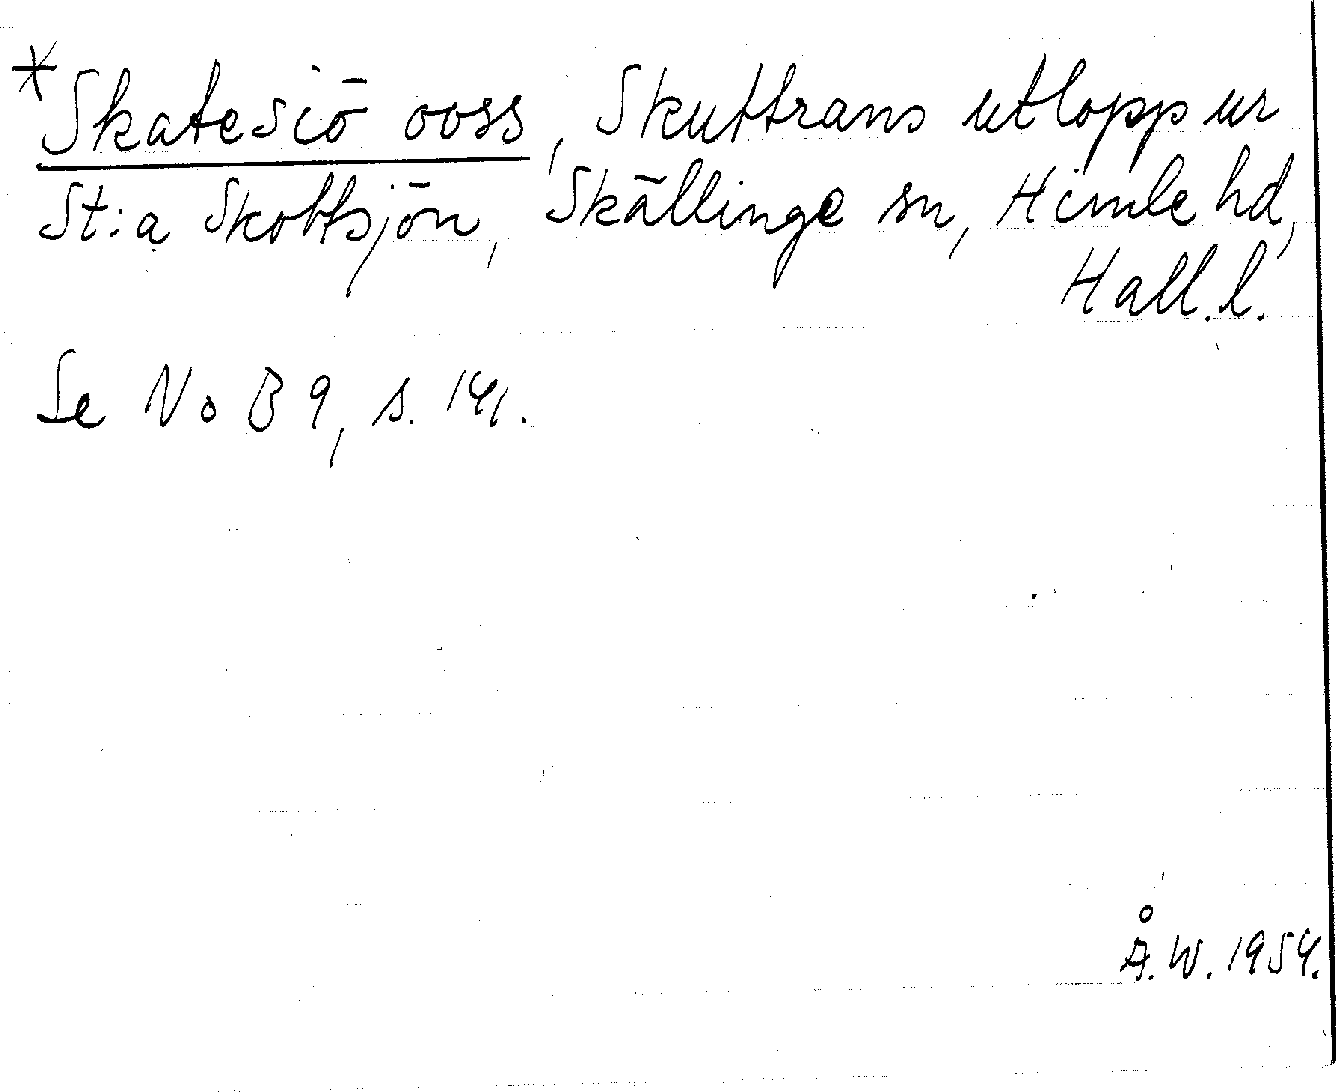 * Skatesiö ooss, Skuttrans utlopp ur
St:a Skottsjön, Skällinge sn, Himle hd,
Hall.l.
Se NoB 9, s. 141.
Å.W. 1954.